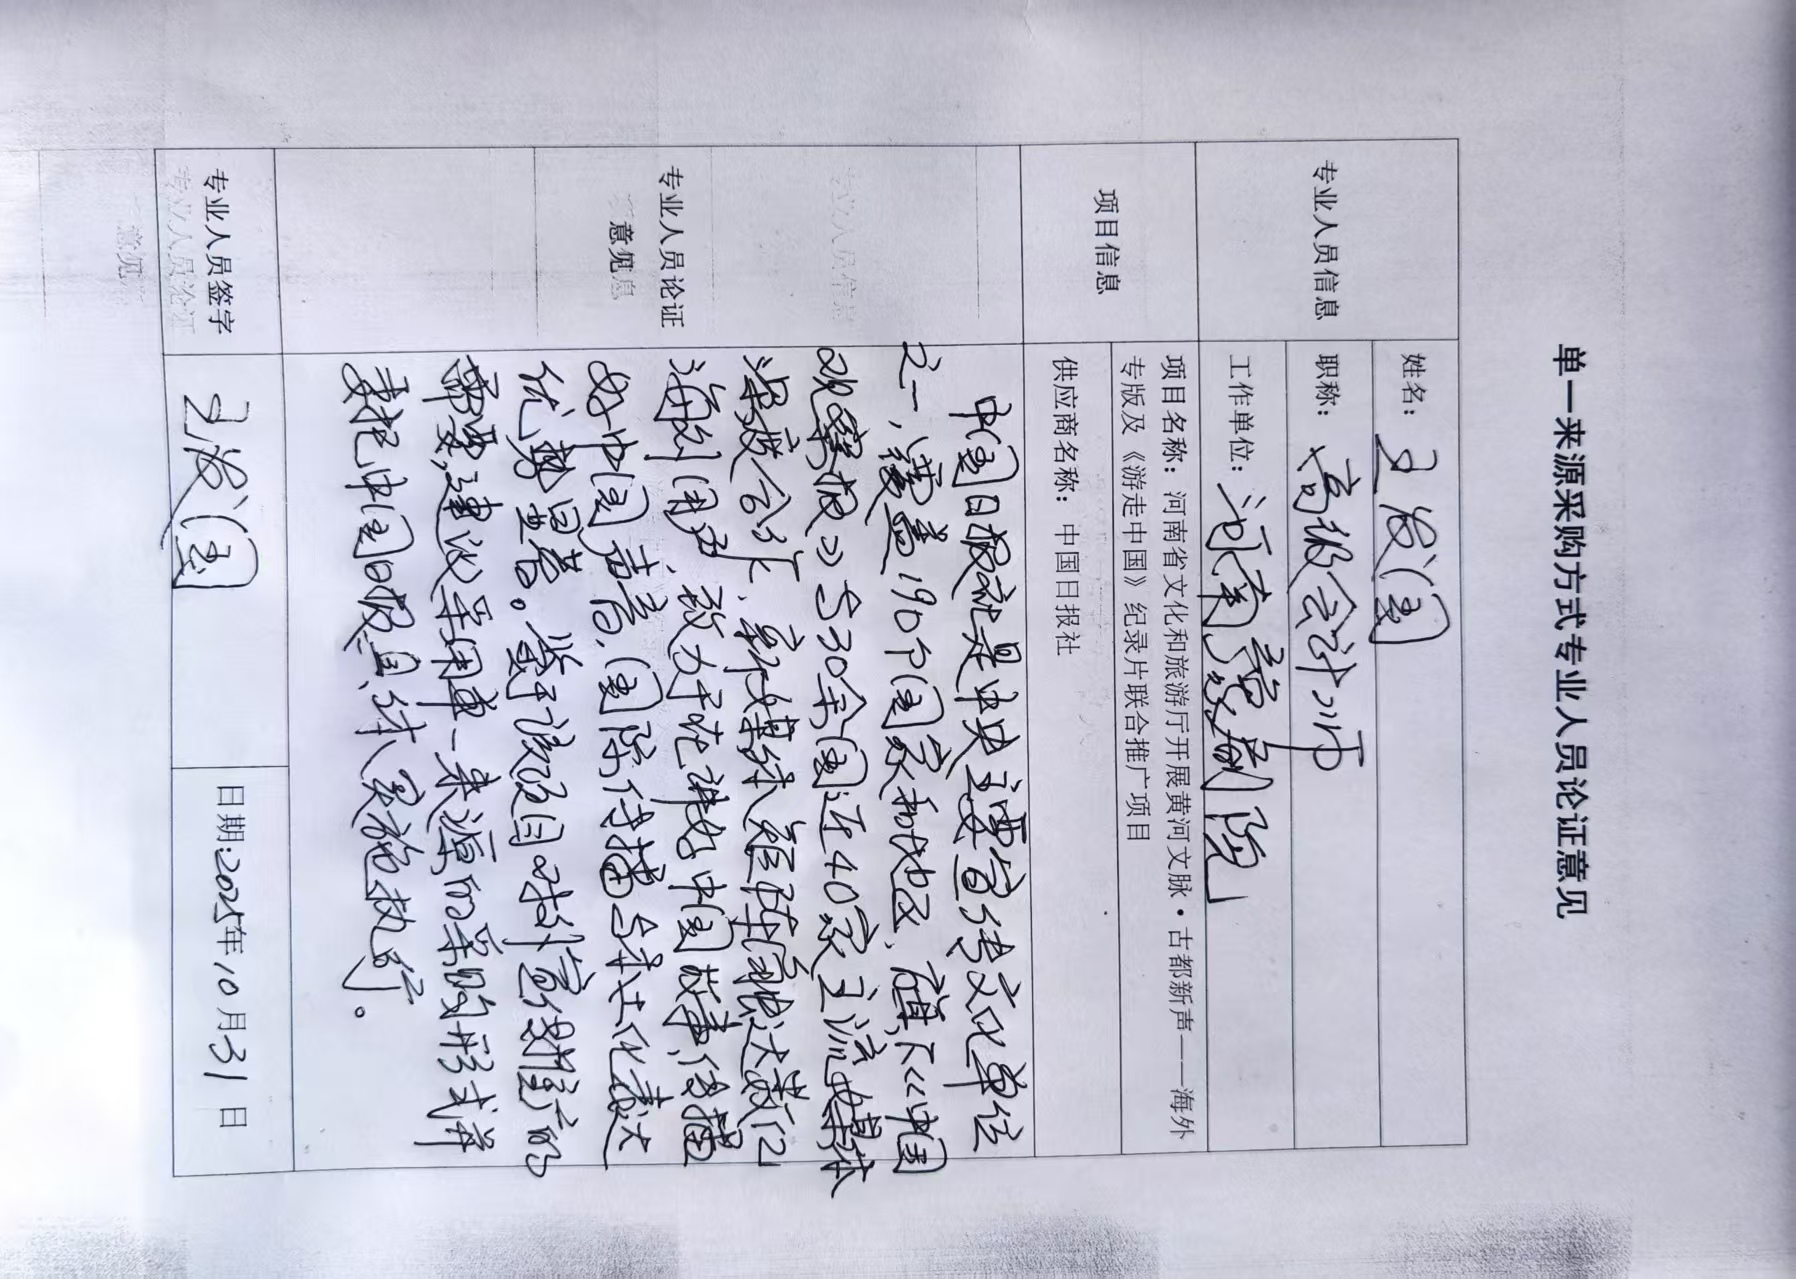 单一来源采购方式专业人员论证意见
专业人员信息
姓名：
职称：高级会计师
工作单位：河南豫剧院
项目信息
项目名称：河南省文化和旅游厅开展黄河文脉·古都新声——海外
专版及《游走中国》纪录片联合推广项目
供应商名称：中国日报社
专业人员论证
意见
中国日报社是中央主要宣传文化单位
之一，覆盖190个国家和地区，旗下《中国
观察报》与30余国近40家主流媒体
深度合作，新媒体矩阵
海外用户，致力于在讲好中国故事，传播
好中国声音，国际传播与
优势显著。鉴于该项目对外宣传推广的
需要，建议采用单一来源的采购形式并
委托中国日报具体实施执行。
专业人员签字
日期：2025年10月31日